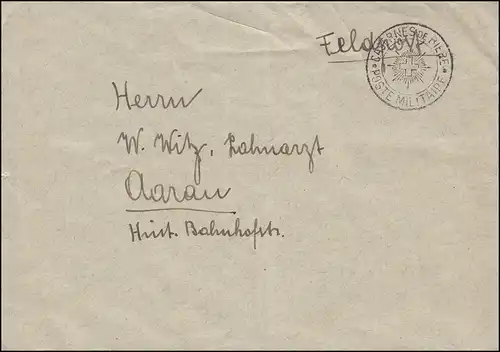 Feldpost
CASERNES DE BIERE
* POSTE MILITAIRE *
Herrn
W. Witz, Zahnarzt
Aarau
Hint. Bahnhofstr.